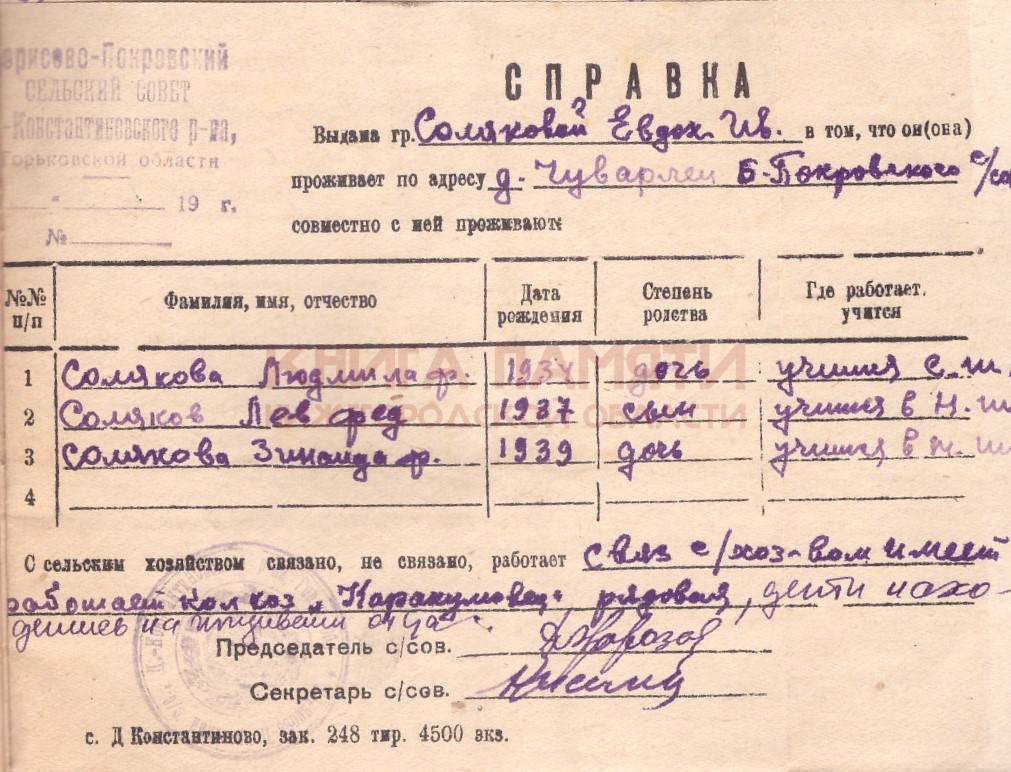 рисово-Покровский
СЕЛЬСКИЙ СОВЕТ
-Константиновского р-на,
Горьковской области
19 г.
№
СПРАВКА
Выдана гр. Соляковой Евдок. Ив. в том, что он(она)
проживает по адресу д. Чувармеи Б-Покровского с/со
совместно с ней проживают:
№№ п/п Фамилия, имя, отчество Дата рождения Степень родства Где работает, учится
1 Солякова Людмила ф. 1934 дочь учится с. ш.
2 Соляков Лев фед 1937 сын учится в Н. ш
3 Солякова Зинаида ф. 1939 дочь учится в н. ш
4
КНИГА ПАМЯТИ
НИЖЕГОРОДСКОЙ ОБЛАСТИ
С сельским хозяйством связано, не связано, работает связ с/хоз-вом имеет
работает колхоз „Каракумовец" рядовая, дети нахо-
дились на отца
Председатель с/сов.
Секретарь с/сов.
с. Д Константиново, зак. 248 тир. 4500 экз.